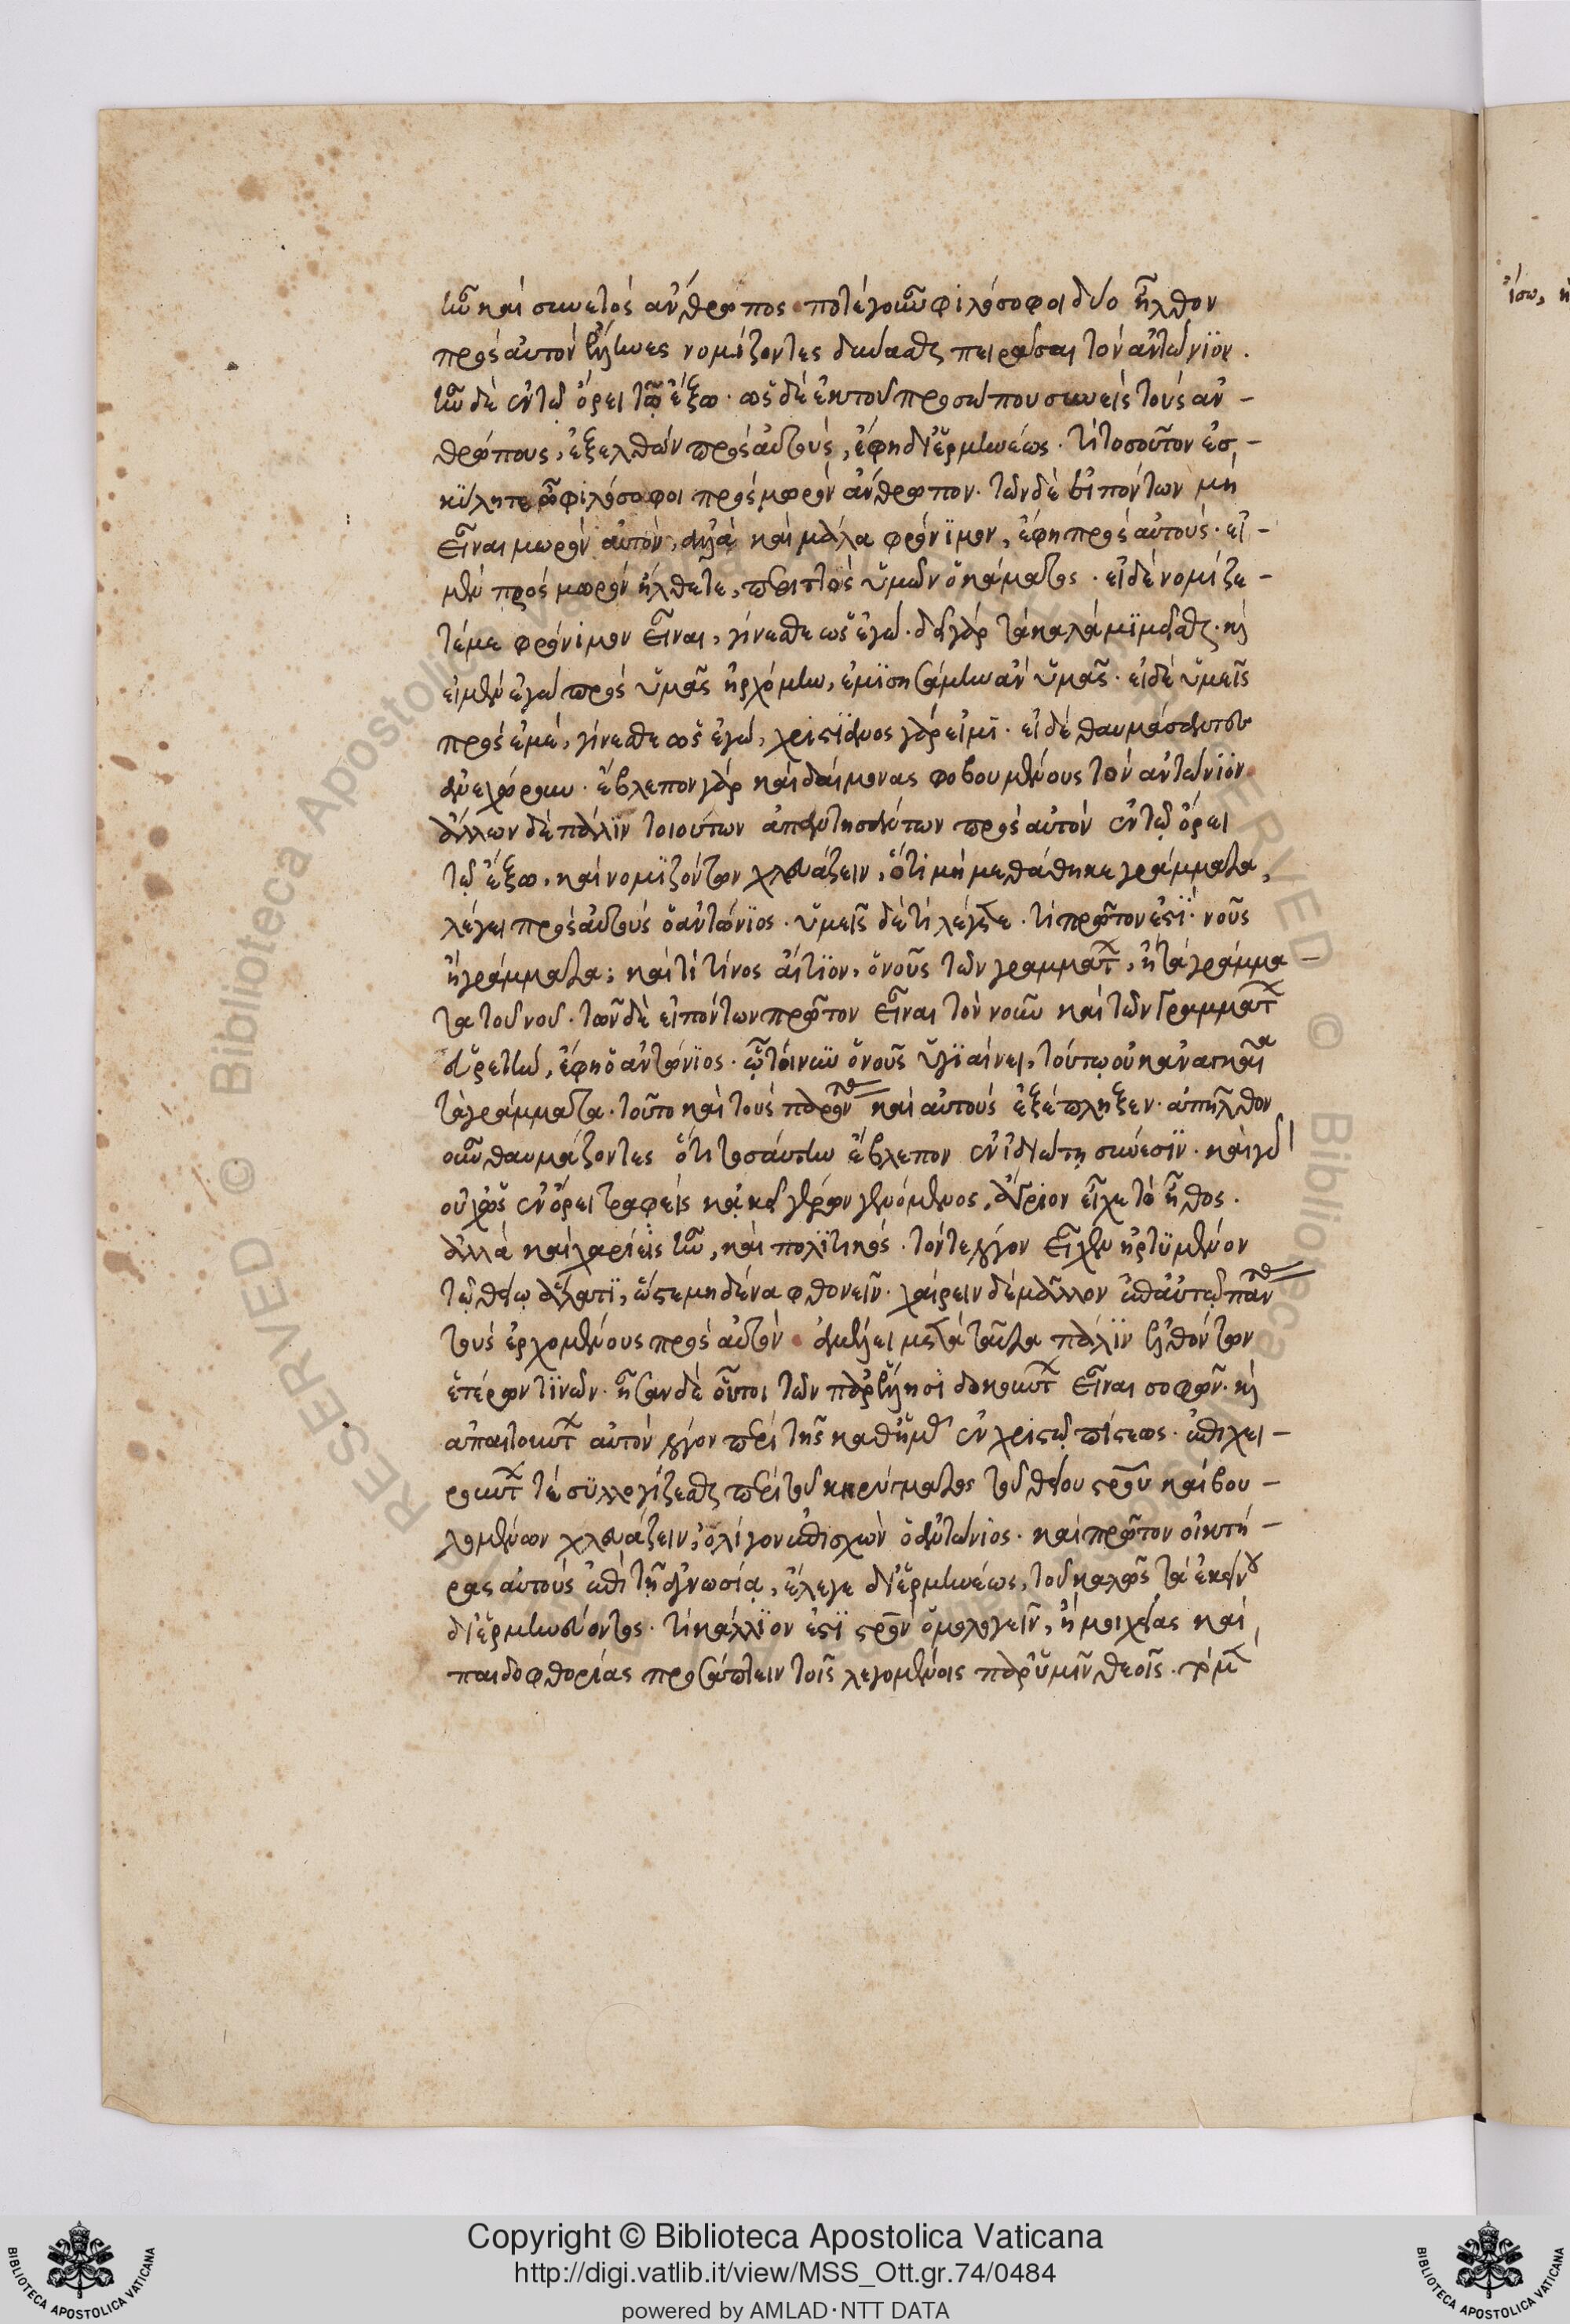 ἦν καὶ συνετὸς ἄνθρωπος· ποτὲ γοῦν φιλόσοφοι δύο ἦλθον
πρὸς αὐτὸν ἕλληνες νομίζοντες δύνασθαι πειράσαι τὸν ἀντώνϊον.
ἦν δὲ ἐν τῷ ὄρει τῷ ἔξω· ὡς δὲ ἐκ τοῦ προσώπου συνεὶς τοὺς ἀν-
θρώπους, ἐξελθὼν πρὸς αὐτοὺς, ἔφη δι' ἑρμηνέως· τί τοσοῦτον ἐσ-
κύλητε ὦ φιλόσοφοι πρὸς μωρὸν ἄνθρωπον· τῶν δὲ εἰπόντων μὴ
εἶναι μωρὸν αὐτὸν, ἀλλὰ καὶ μάλα φρόνϊμον, ἔφη πρὸς αὐτούς· εἰ-
μὲν πρὸς μωρὸν ἤλθετε, περιττὸς ὑμῶν ὁ κάματος· εἰ δὲ νομίζε-
τέ με φρόνιμον εἶναι, γίνεσθε ὡς ἐγώ· δεῖ γὰρ τὰ καλὰ μϊμεῖσθαι· καὶ
εἰ μὲν ἐγὼ πρὸς ὑμᾶς ἠρχόμην, ἐμϊμησάμην ἂν ὑμᾶς· εἰ δὲ ὑμεῖς
πρὸς ἐμὲ, γίνεσθε ὡς ἐγώ, χριστϊανὸς γάρ εἰμι· οἱ δὲ θαυμάσαντες
ἀνεχώρουν· ἔβλεπον γὰρ καὶ δαίμονας φοβουμένους τὸν ἀντώνϊον
ἄλλων δὲ πάλϊν τοιούτων ἀπαντησάντων πρὸς αὐτὸν ἐν τῷ ὄρει
τῷ ἔξω, καὶ νομϊζόντων χλευάζειν, ὅτι μὴ μεμάθηκε γράμματα,
λέγει πρὸς αὐτοὺς ὁ ἀντώνϊος· ὑμεῖς δὲ τί λέγετε· τί πρῶτον ἐστϊ· νοῦς
ἢ γράμματα; καὶ τί τίνος αἴτϊον, ὁ νοῦς τῶν γραμμάτων, ἢ τὰ γράμμα-
τα τοῦ νοῦ· τῶν δὲ εἰπόντων πρῶτον εἶναι τὸν νοῦν καὶ τῶν γραμμάτων
εὑρετὴν, ἔφη ὁ ἀντώνϊος· ᾧ τοίνυν ὁ νοῦς ὑγϊαίνει, τούτῳ οὐκ ἀναγκαῖα
τὰ γράμματα· τοῦτο καὶ τοὺς παρόντας καὶ αὐτοὺς ἐξέπληξεν· ἀπῆλθον
οὖν θαυμάζοντες ὅτι τοσαύτην ἔβλεπον ἐν ἰδιώτῃ σύνεσϊν· καὶ γὰρ
οὐχ ὡς ἐν ὄρει τραφεὶς κἀκεῖ γέρων γενόμενος, ἄγριον εἶχε τὸ ἦθος·
ἀλλὰ καὶ χαρίεις ἦν, καὶ πολϊτικός· τόν τε λόγον εἶχεν ἠρτϋμένον
τῷ θείῳ ἅλατϊ, ὥστε μηδένα φθονεῖν· χαίρειν δὲ μᾶλλον ἐπ' αὐτῷ πάντας
τοὺς ἐρχομένους πρὸς αὐτὸν· ἀμέλει μετὰ ταῦτα πάλϊν ἐλθόντων
ἑτέρων τϊνῶν· ἦσαν δὲ οὗτοι τῶν παρ' ἕλλησϊ δοκούντων εἶναι σοφῶν· καὶ
ἀπαιτούντων αὐτὸν λόγον περὶ τῆς καθ' ἡμᾶς ἐν χριστῷ πίστεως· ἐπιχει-
ρούντων τὲ σϋλλογίζεσθαι περὶ τοῦ κηρύγματος τοῦ θείου σταυροῦ καὶ βου-
λομένων χλευάζειν, ὀλίγον ἐπισχὼν ὁ ἀντώνιος· καὶ πρῶτον οἰκτή-
ρας αὐτοὺς ἐπὶ τῇ ἀγνωσίᾳ, ἔλεγε δι' ἑρμηνέως, τοῦ καλῶς τὰ ἐκείνου
διερμηνεύοντος· τί κάλλϊόν ἐστϊ σταυρὸν ὁμολογεῖν, ἢ μοιχείας καὶ
παιδοφθορίας προσάπτειν τοῖς λεγομένοις παρ' ὑμῖν θεοῖς· τὸ μὲν